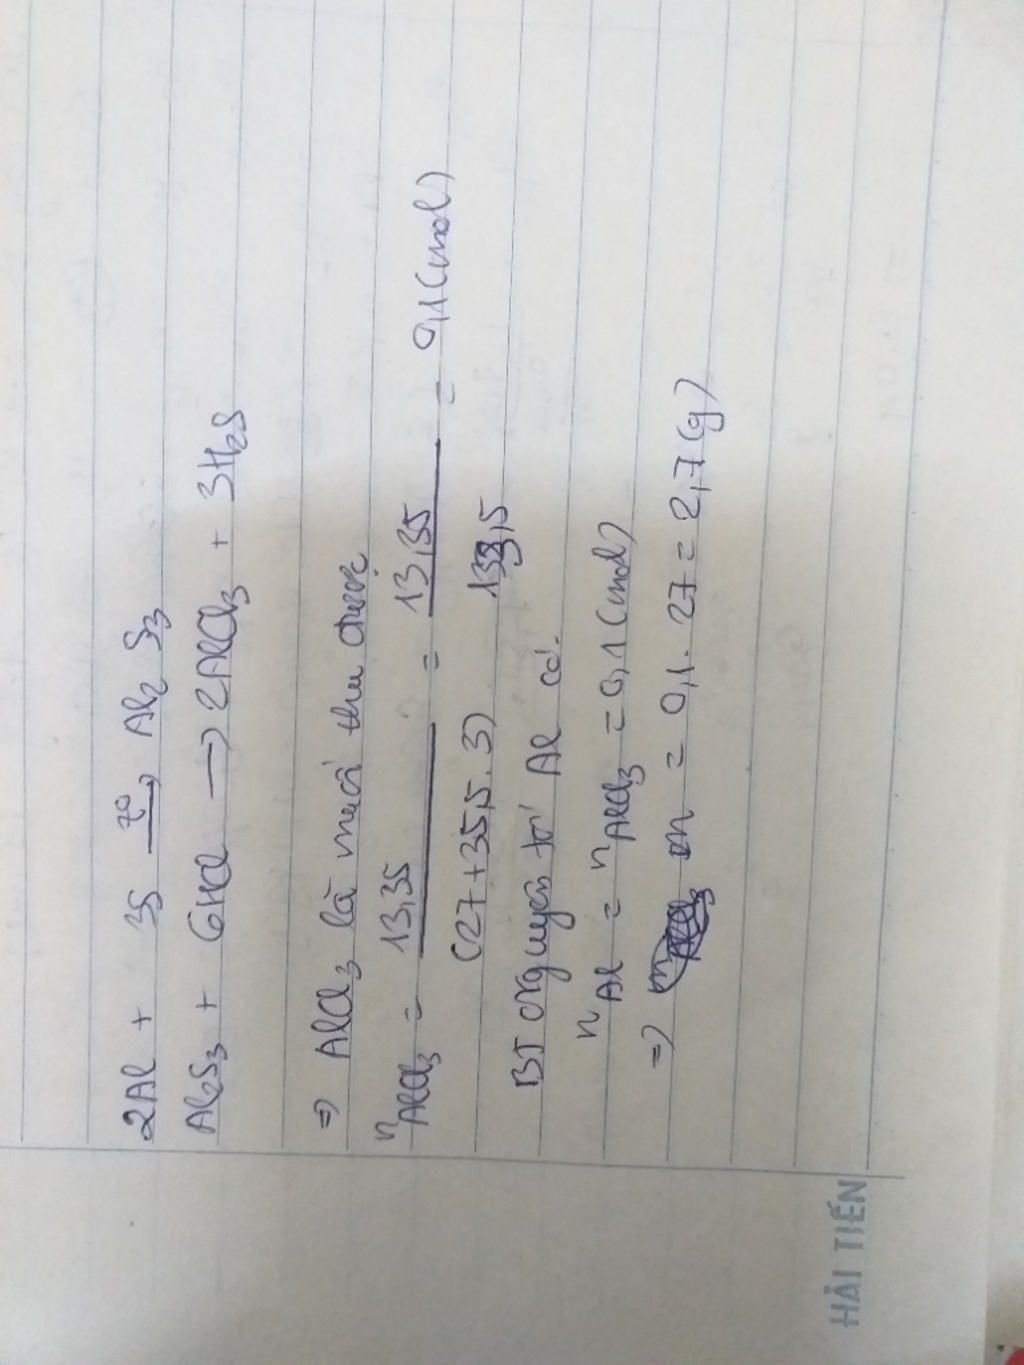 2Al + 3S t° → Al2S3
Al2S3 + 6HCl → 2AlCl3 + 3H2S
=> AlCl3 là muối thu được
nAlCl3 = 13,35 / (27+35,5.3) = 13,35 / 133,5 = 0,1 (mol)
BT nguyên tố Al có:
nAl = nAlCl3 = 0,1 (mol)
=> m = 0,1 . 27 = 2,7 (g)
HẢI TIẾN